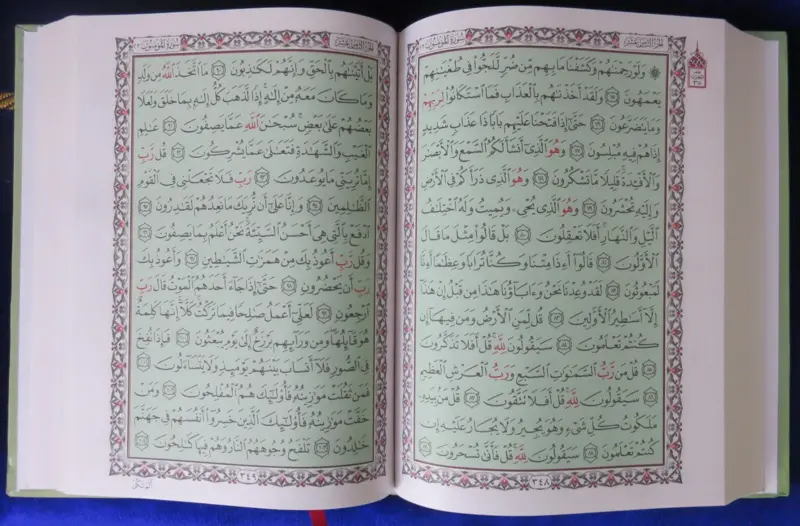 الجزء الثامن عشر
سورة المؤمنون
۞ وَلَوْ رَحِمْنَٰهُمْ وَكَشَفْنَا مَا بِهِم مِّن ضُرٍّ لَّلَجُّوا۟ فِى طُغْيَٰنِهِمْ
يَعْمَهُونَ ٧٥ وَلَقَدْ أَخَذْنَٰهُم بِٱلْعَذَابِ فَمَا ٱسْتَكَانُوا۟ لِرَبِّهِمْ
وَمَا يَتَضَرَّعُونَ ٧٦ حَتَّىٰٓ إِذَا فَتَحْنَا عَلَيْهِم بَابًا ذَا عَذَابٍ شَدِيدٍ
إِذَا هُمْ فِيهِ مُبْلِسُونَ ٧٧ وَهُوَ ٱلَّذِىٓ أَنشَأَ لَكُمُ ٱلسَّمْعَ وَٱلْأَبْصَٰرَ
وَٱلْأَفْـِٔدَةَ ۚ قَلِيلًا مَّا تَشْكُرُونَ ٧٨ وَهُوَ ٱلَّذِى ذَرَأَكُمْ فِى ٱلْأَرْضِ
وَإِلَيْهِ تُحْشَرُونَ ٧٩ وَهُوَ ٱلَّذِى يُحْىِۦ وَيُمِيتُ وَلَهُ ٱخْتِلَٰفُ
ٱلَّيْلِ وَٱلنَّهَارِ ۚ أَفَلَا تَعْقِلُونَ ٨٠ بَلْ قَالُوا۟ مِثْلَ مَا قَالَ
ٱلْأَوَّلُونَ ٨١ قَالُوٓا۟ أَءِذَا مِتْنَا وَكُنَّا تُرَابًا وَعِظَٰمًا أَءِنَّا
لَمَبْعُوثُونَ ٨٢ لَقَدْ وُعِدْنَا نَحْنُ وَءَابَآؤُنَا هَٰذَا مِن قَبْلُ إِنْ هَٰذَآ
إِلَّآ أَسَٰطِيرُ ٱلْأَوَّلِينَ ٨٣ قُل لِّمَنِ ٱلْأَرْضُ وَمَن فِيهَآ إِن
كُنتُمْ تَعْلَمُونَ ٨٤ سَيَقُولُونَ لِلَّهِ ۚ قُلْ أَفَلَا تَذَكَّرُونَ
٨٥ قُلْ مَن رَّبُّ ٱلسَّمَٰوَٰتِ ٱلسَّبْعِ وَرَبُّ ٱلْعَرْشِ ٱلْعَظِيمِ
٨٦ سَيَقُولُونَ لِلَّهِ ۚ قُلْ أَفَلَا تَتَّقُونَ ٨٧ قُلْ مَنۢ بِيَدِهِۦ
مَلَكُوتُ كُلِّ شَىْءٍ وَهُوَ يُجِيرُ وَلَا يُجَارُ عَلَيْهِ إِن
كُنتُمْ تَعْلَمُونَ ٨٨ سَيَقُولُونَ لِلَّهِ ۚ قُلْ فَأَنَّىٰ تُسْحَرُونَ ٨٩
٣٤٨
الجزء الثامن عشر
سورة المؤمنون
بَلْ أَتَيْنَٰهُم بِٱلْحَقِّ وَإِنَّهُمْ لَكَٰذِبُونَ ٩٠ مَا ٱتَّخَذَ ٱللَّهُ مِن وَلَدٍ
وَمَا كَانَ مَعَهُۥ مِنْ إِلَٰهٍ ۚ إِذًا لَّذَهَبَ كُلُّ إِلَٰهٍۭ بِمَا خَلَقَ وَلَعَلَا
بَعْضُهُمْ عَلَىٰ بَعْضٍ ۚ سُبْحَٰنَ ٱللَّهِ عَمَّا يَصِفُونَ ٩١ عَٰلِمِ
ٱلْغَيْبِ وَٱلشَّهَٰدَةِ فَتَعَٰلَىٰ عَمَّا يُشْرِكُونَ ٩٢ قُل رَّبِّ
إِمَّا تُرِيَنِّى مَا يُوعَدُونَ ٩٣ رَبِّ فَلَا تَجْعَلْنِى فِى ٱلْقَوْمِ
ٱلظَّٰلِمِينَ ٩٤ وَإِنَّا عَلَىٰٓ أَن نُّرِيَكَ مَا نَعِدُهُمْ لَقَٰدِرُونَ ٩٥
ٱدْفَعْ بِٱلَّتِى هِىَ أَحْسَنُ ٱلسَّيِّئَةَ ۚ نَحْنُ أَعْلَمُ بِمَا يَصِفُونَ ٩٦
وَقُل رَّبِّ أَعُوذُ بِكَ مِنْ هَمَزَٰتِ ٱلشَّيَٰطِينِ ٩٧ وَأَعُوذُ بِكَ
رَبِّ أَن يَحْضُرُونِ ٩٨ حَتَّىٰٓ إِذَا جَآءَ أَحَدَهُمُ ٱلْمَوْتُ قَالَ رَبِّ
ٱرْجِعُونِ ٩٩ لَعَلِّىٓ أَعْمَلُ صَٰلِحًا فِيمَا تَرَكْتُ ۚ كَلَّآ ۚ إِنَّهَا كَلِمَةٌ
هُوَ قَآئِلُهَا ۖ وَمِن وَرَآئِهِم بَرْزَخٌ إِلَىٰ يَوْمِ يُبْعَثُونَ ١٠٠ فَإِذَا نُفِخَ
فِى ٱلصُّورِ فَلَآ أَنسَابَ بَيْنَهُمْ يَوْمَئِذٍ وَلَا يَتَسَآءَلُونَ ١٠١
فَمَن ثَقُلَتْ مَوَٰزِينُهُۥ فَأُو۟لَٰٓئِكَ هُمُ ٱلْمُفْلِحُونَ ١٠٢ وَمَنْ
خَفَّتْ مَوَٰزِينُهُۥ فَأُو۟لَٰٓئِكَ ٱلَّذِينَ خَسِرُوٓا۟ أَنفُسَهُمْ فِى جَهَنَّمَ
خَٰلِدُونَ ١٠٣ تَلْفَحُ وُجُوهَهُمُ ٱلنَّارُ وَهُمْ فِيهَا كَٰلِحُونَ ١٠٤
٣٤٩
ألم تكن